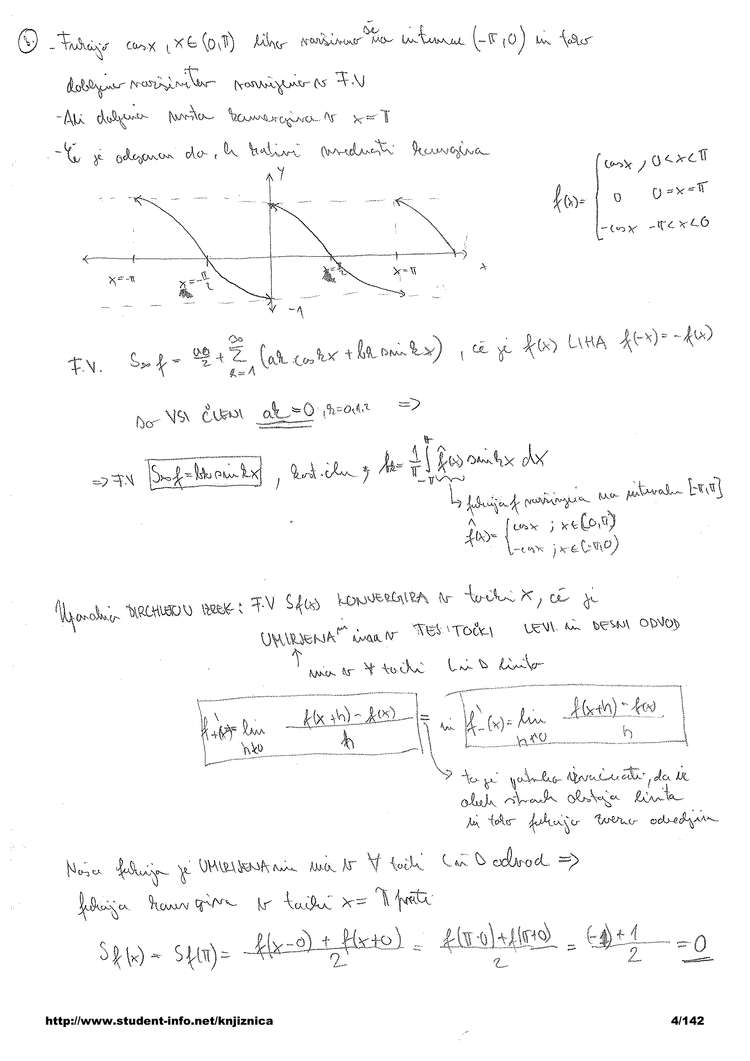 6. - Funkcijo cos x, x∈(0,π) liho razširimo se na interval (-π,0) in tako
dobljeno razširitev razvijemo v F.V
- Ali dobljena vrsta konvergira v x=π
- Če je odgovor da, h kateri vrednosti konvergira
y
f(x)= { cos x, 0<x<π
0 0=x=π
-cos x -π<x<0
x=-π x=-π/2 x=π/2 x=π x
-1
F.V. S∞f = a0/2 + ∞Σk=1 (ak cos kx + bk sin kx), če je f(x) LIHA f(-x)=-f(x)
so VSI ČLENI ak=0, k=0,1,2 =>
=> F.V S∞f=bk sin kx, kot. členi bk= 1/π ∫-π^π f̂(x) sin kx dx
↳ funkcija f razširjena na intervalu [-π,π]
f̂(x)= { cos x ; x∈[0,π]
-cos x ; x∈(-π,0)
Uporabimo DIRCHLETOV IZREK: F.V Sf(x) KONVERGIRA v točki x, če je
UMIRJENA in ima v TEJ TOČKI LEVI in DESNI ODVOD
ima v ∀ točki L in D limito
f'+(x)= lim h↓0 f(x+h)-f(x) / h = in f'-(x)= lim h↑0 f(x+h)-f(x) / h
→ to je potrebno izračunati, da iz
obeh strani obstaja limita
in tako funkcijo zvezno odvedljiva
Naša funkcija je UMIRJENA in ima v ∀ točki L in D odvod =>
funkcija konvergira v točki x=π proti
Sf(x) = Sf(π) = f(x-0) + f(x+0) / 2 = f(π-0)+f(π+0) / 2 = (-1)+1 / 2 = 0
http://www.student-info.net/knjiznica 4/142